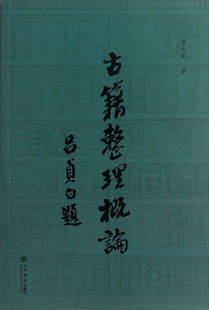 古籍整理概論
呂貞白題